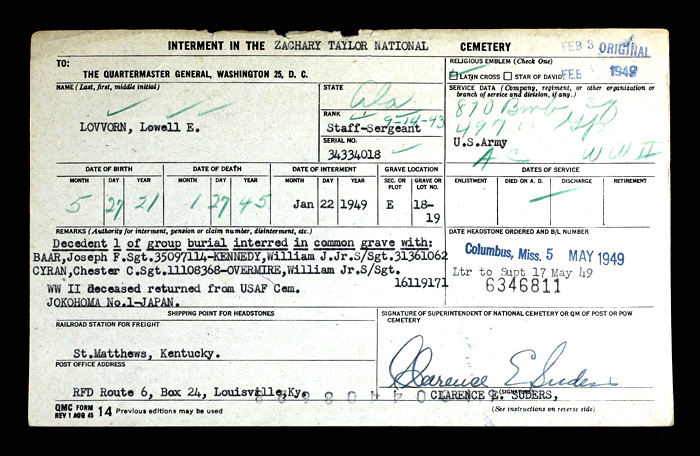 INTERMENT IN THE ZACHARY TAYLOR NATIONAL CEMETERY
FEB 3 ORIGINAL
TO:
THE QUARTERMASTER GENERAL, WASHINGTON 25, D. C.
RELIGIOUS EMBLEM (Check One)
LATIN CROSS STAR OF DAVID
FEB 1949
NAME (Last, first, middle initial)
LOVVORN, Lowell E.
STATE
Ala
RANK 9-14-43
Staff-Sergeant
SERIAL NO.
34334018
SERVICE DATA (Company, regiment, or other organization or branch of service and division, if any.)
870 Bomb Sq
497 " Gp
U.S.Army
A C WW II
DATE OF BIRTH
MONTH DAY YEAR
5 27 21
DATE OF DEATH
MONTH DAY YEAR
1 27 45
DATE OF INTERMENT
MONTH DAY YEAR
Jan 22 1949
GRAVE LOCATION
SEC. OR PLOT GRAVE OR LOT NO.
E 18-
19
DATES OF SERVICE
ENLISTMENT DIED ON A. D. DISCHARGE RETIREMENT
REMARKS (Authority for interment, pension or claim number, disinterment, etc.)
Decedent 1 of group burial interred in common grave with:
BAAR,Joseph F.Sgt.35097114-KENNEDY,William J.Jr.S/Sgt.31361062
CYRAN,Chester C.Sgt.11108368-OVERMIRE,William Jr.S/Sgt.
16119171
WW II deceased returned from USAF Cem.
JOKOHOMA No.1-JAPAN.
DATE HEADSTONE ORDERED AND B/L NUMBER
Columbus, Miss. 5 MAY 1949
Ltr to Supt 17 May 49
6346811
SHIPPING POINT FOR HEADSTONES
RAILROAD STATION FOR FREIGHT
St.Matthews, Kentucky.
POST OFFICE ADDRESS
RFD Route 6, Box 24, Louisville,Ky.
SIGNATURE OF SUPERINTENDENT OF NATIONAL CEMETERY OR QM OF POST OR POW CEMETERY
Clarence E Suders
CLARENCE E. SUDERS,
(SIGNATURE)
QMC FORM
REV 1 AUG 45 14 Previous editions may be used
(See instructions on reverse side)